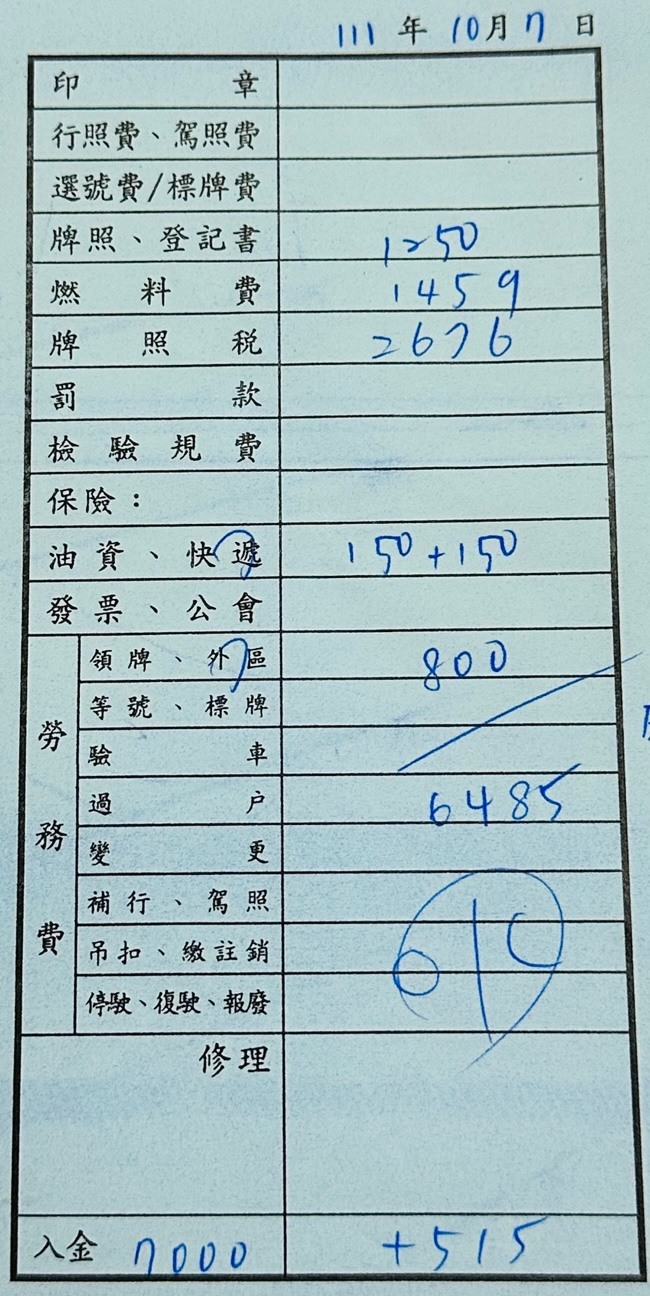 111 年 10 月 7 日
印章
行照費、駕照費
選號費/標牌費
牌照、登記書 1250
燃料費 1459
牌照稅 2676
罰款
檢驗規費
保險：
油資、快遞 150+150
發票、公會
勞務費
領牌、外區 800
等號、標牌
驗車
過戶 6485
變更
補行、駕照
吊扣、繳註銷
停駛、復駛、報廢
修理
入金 7000 +515